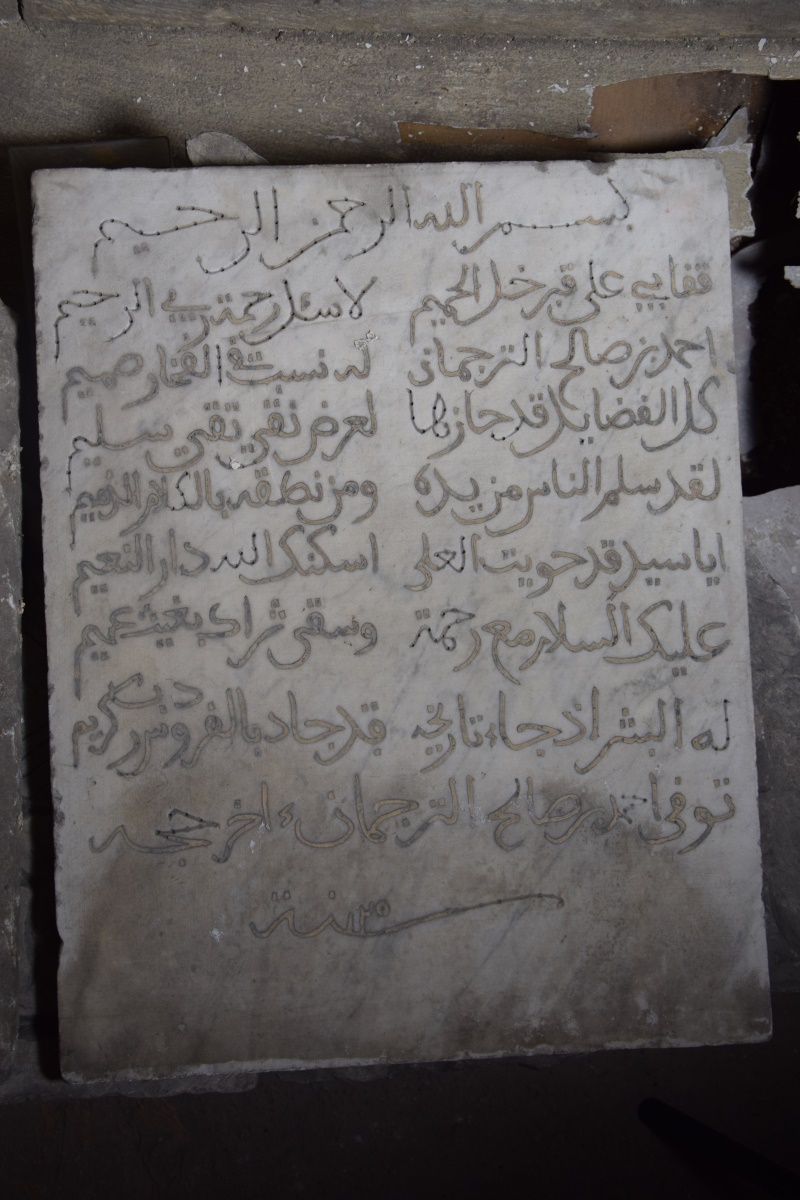 بسم الله الرحمن الرحيم
قفا بي على قبر خل الحميم لاسئل رحمة ربي الرحيم
احمد بن صالح الترجماني له نسبة في الفخار صميم
كل الفضايل قد حازها لعرض نقي تقي سليم
لقد سلم الناس من يده ومن نطقه بالكلام الذميم
ايا سيد قد حويت العلى اسكنك الله دار النعيم
عليك السلام مع رحمة وسقى ثراك بغيث عميم
له البشر اذ جاء تاريخ قد جاد بالفردوس رب كريم
توفي احمد بن صالح الترجماني اخر حجه
سنة